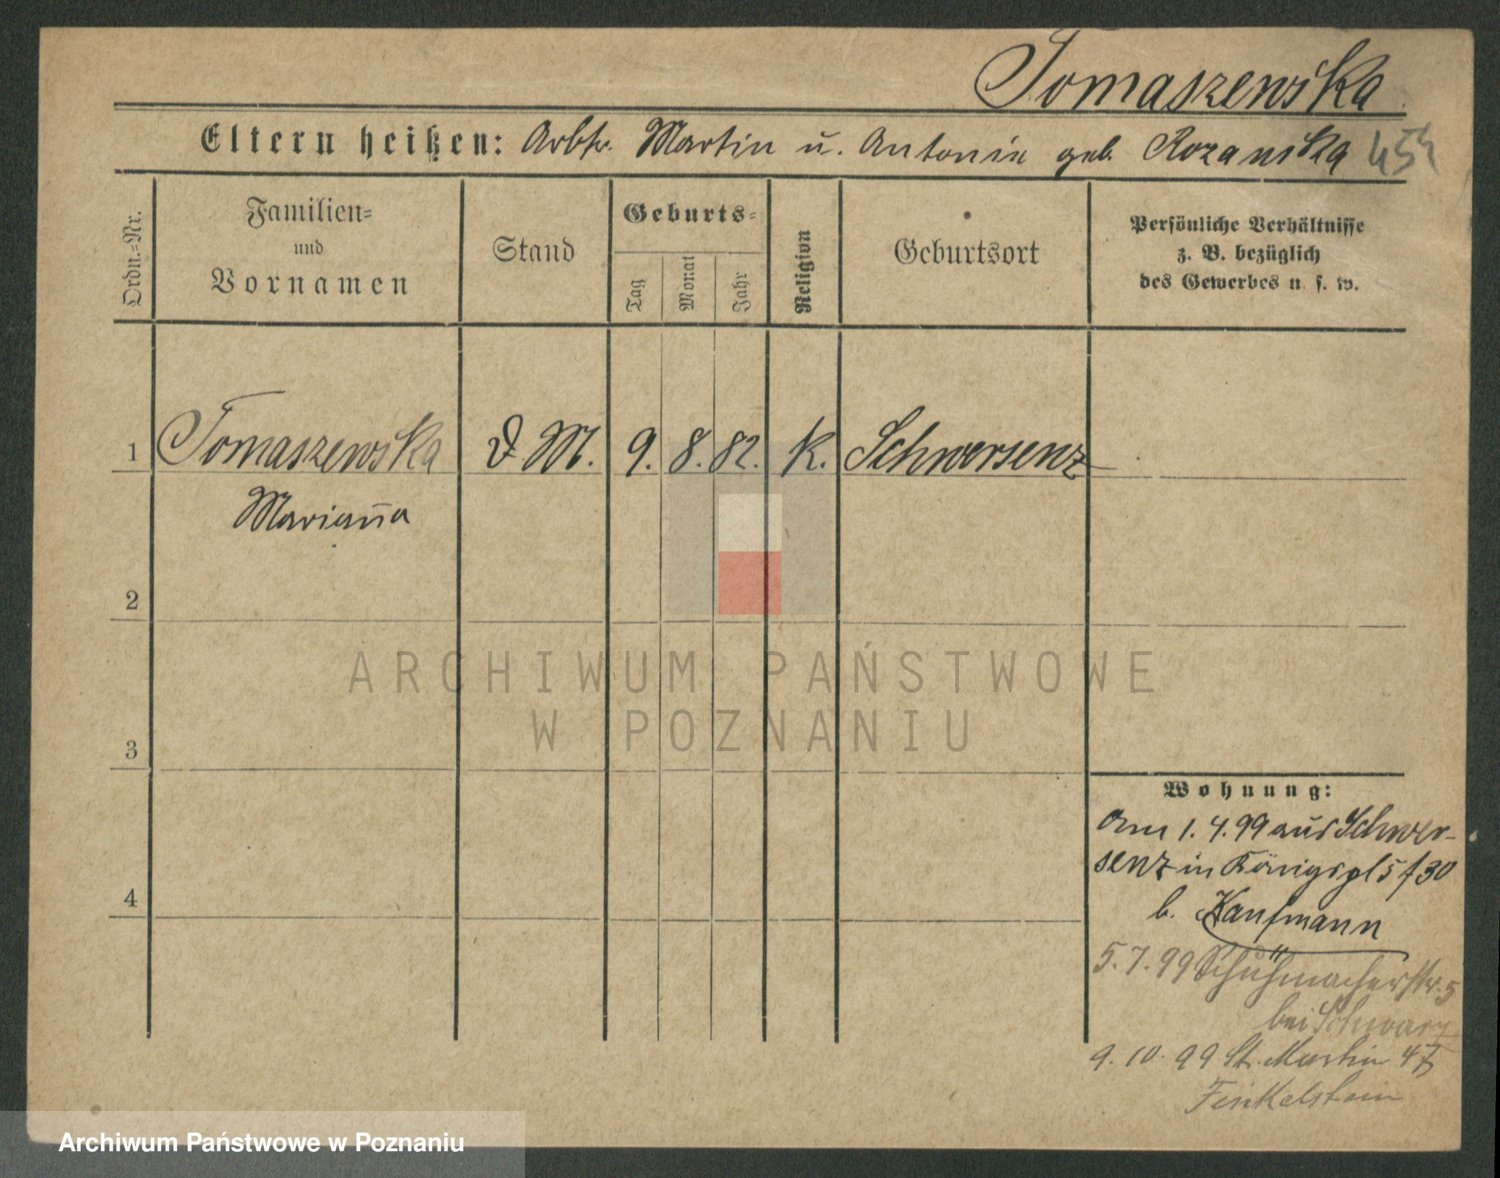 Tomaszewska
Eltern heißen: Arbtr. Martin u. Antonie geb. Rozanska
Ordn.-Nr.
Familien-
und
Vornamen
Stand
Geburts-
Tag
Monat
Jahr
Religion
Geburtsort
Persönliche Verhältnisse
z. B. bezüglich
des Gewerbes u. s. w.
1 Tomaszewska D. M. 9. 8. 82. k. Schwersenz
Marianna
2
ARCHIWUM PAŃSTWOWE
W POZNANIU
3
Wohnung:
Am 1. 4. 99 aus Schwer-
senz in Königspl 5 / 30
b. Kaufmann
4
5. 7. 99 Schuhmacherstr. 5
bei Schwarz
9. 10. 99 St. Martin
Finkelstein
Archiwum Państwowe w Poznaniu